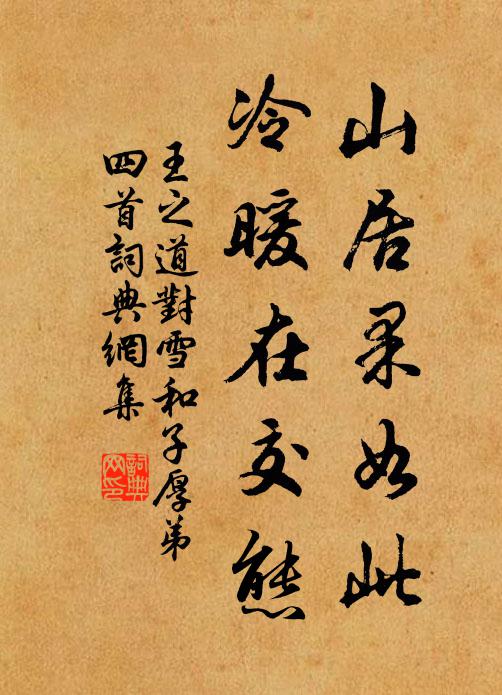 山居果如此
冷暖在交態
王之道對雪和子厚弟
四首詞典網集
詞典
网印